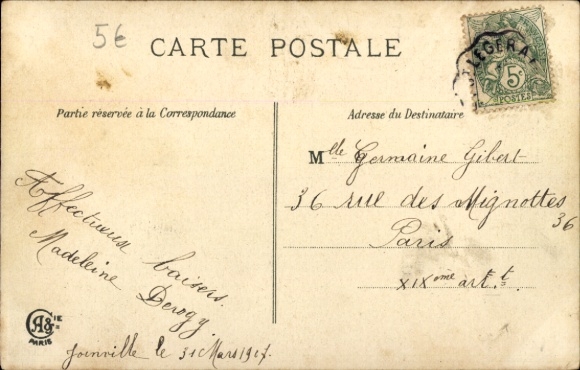 5€
CARTE POSTALE
Partie réservée à la Correspondance
Adresse du Destinataire
Affectueux baisers.
Madeleine Derogy
Joinville le 31 Mars 1907.
Mlle Germaine Gibert
36 rue des Mignottes
36
Paris
XIXeme arr.t
5c
POSTES
CIE
PARIS